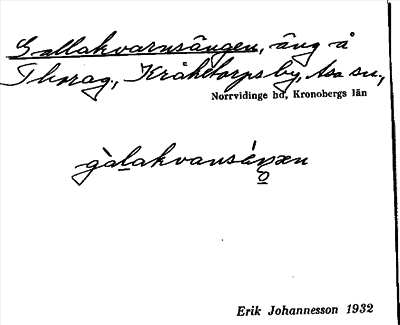 Gallakvarnsängen, äng å
Thorag., Kråketorps by, Asa sn,
Norrvidinge hd, Kronobergs län
gàlakvansáŋən
Erik Johannesson 1932